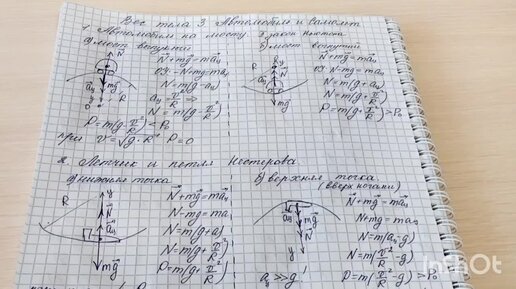 Вес тела 3 Автомобиль и Самолёт
1. Автомобиль на мосту. 2 закон Ньютона
а) мост выпуклый
N⃗ + mg⃗ = ma⃗ц
OY: -N+mg=maц
N=m(g-aц)
aц = v²/R ⇒
N = m(g - v²/R)
P=m(g - v²/R) < P₀
при v=√g·R P=0
б) мост вогнутый
N⃗+mg⃗=ma⃗ц
OY N-mg=maц
N=m(g+aц)
N=m(g+v²/R)
P=m(g+v²/R)>P₀
2 Летчик и петля Нестерова
а) нижняя точка
N⃗+mg⃗=ma⃗ц
N-mg=ma
N=m(g+a)
N=m(g+v²/R)
P=m(g+v²/R)
б) верхняя точка
(вверх ногами)
N⃗+mg⃗=ma⃗ц
N+mg=maц
N=m(aц-g)
N=m(v²/R-g)
aц >> g
P=m(v²/R-g)>P₀
R
y
N⃗
aц
mg⃗
KoshkinO!